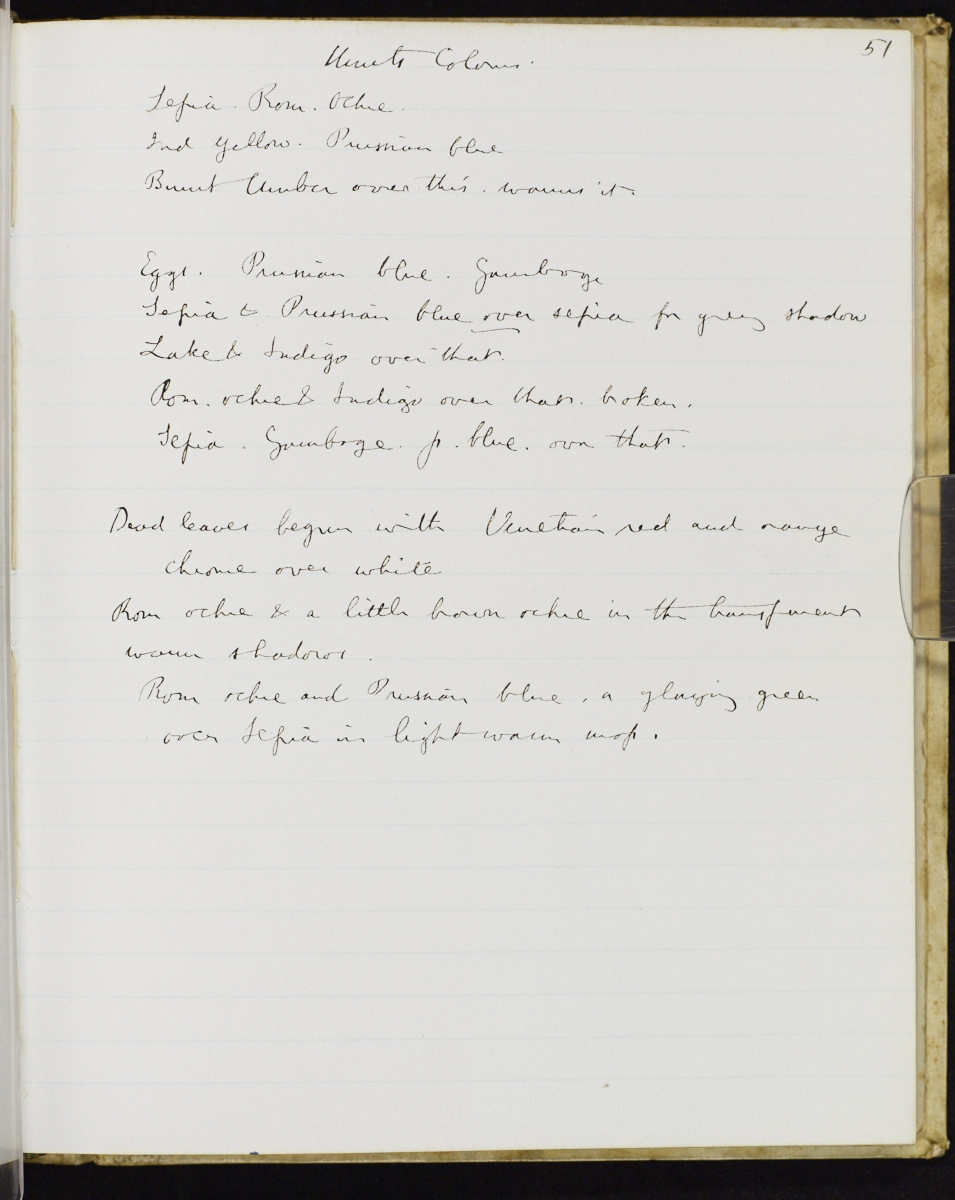 51
Hunts Colours.
Sepia. Rom. Ochre.
Ind Yellow. Prussian blue
Burnt Umber over this. warms it.
Eggs. Prussian blue. Gamboge
Sepia & Prussian blue over sepia for grey shadow
Lake & Indigo over that.
Rom. ochre & Indigo over that. broken.
Sepia. Gamboge. p. blue. over that.
Dead leaves begun with Venetian red and orange
chrome over white
Rom ochre & a little brown ochre in the transparent
warm shadows.
Rom ochre and Prussian blue, a glazing green
over Sepia in light warm moss.